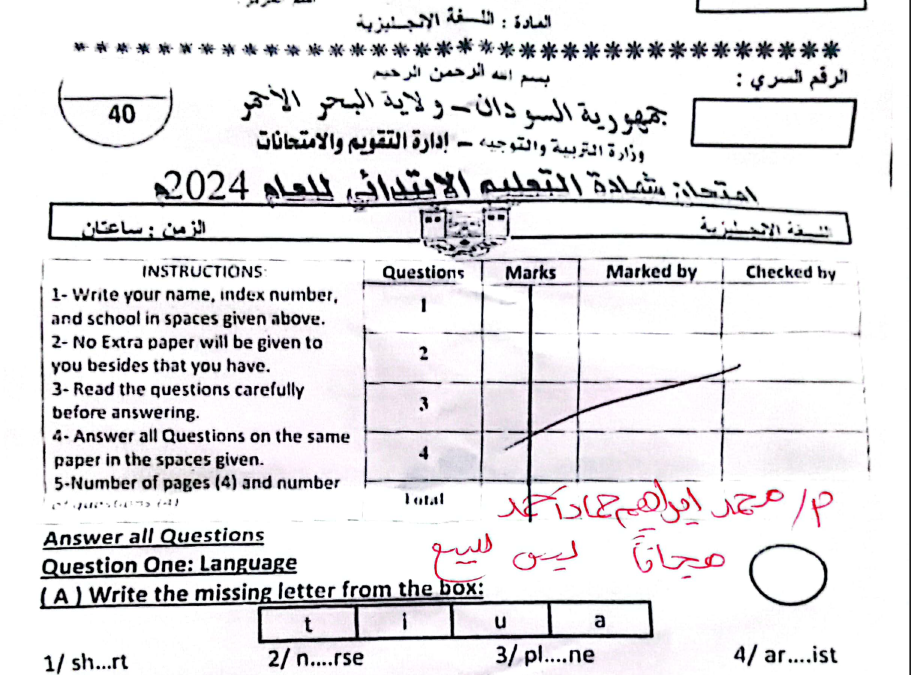 المادة : اللغة الإنجليزية
بسم الله الرحمن الرحيم
الرقم السري :
40
جمهورية السودان - ولاية البحر الأحمر
وزارة التربية والتوجيه - إدارة التقويم والامتحانات
امتحان شهادة التعليم الابتدائي للعام 2024م
اللغة الإنجليزية
الزمن : ساعتان
INSTRUCTIONS:
1- Write your name, index number,
and school in spaces given above.
2- No Extra paper will be given to
you besides that you have.
3- Read the questions carefully
before answering.
4- Answer all Questions on the same
paper in the spaces given.
5-Number of pages (4) and number
of questions (4)
Questions Marks Marked by Checked by
1
2
3
4
Total
م/ محمد ابراهيم حماد احمد
مجاناً ليس للبيع
Answer all Questions
Question One: Language
( A ) Write the missing letter from the box:
t i u a
1/ sh...rt 2/ n....rse 3/ pl....ne 4/ ar....ist